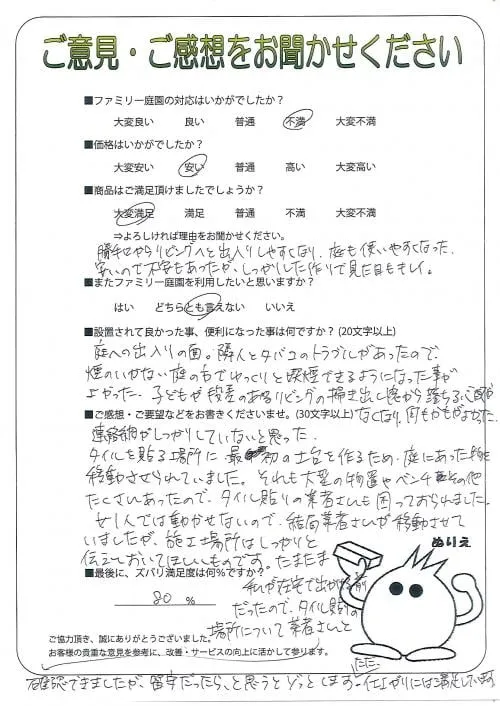 ご意見・ご感想をお聞かせください
■ファミリー庭園の対応はいかがでしたか？
大変良い 良い 普通 不満 大変不満
■価格はいかがでしたか？
大変安い 安い 普通 高い 大変高い
■商品はご満足頂けましたでしょうか？
大変満足 満足 普通 不満 大変不満
⇒よろしければ理由をお聞かせください。
勝手口やリビングへと出入りしやすくなり、庭も使いやすくなった。
安いので不安もあったが、しっかりした作りで見た目もキレイ。
■またファミリー庭園を利用したいと思いますか？
はい どちらとも言えない いいえ
■設置されて良かった事、便利になった事は何ですか？(20文字以上)
庭への出入りの面。隣人とタバコのトラブルがあったので、
煙のいかない庭の方でゆっくりと喫煙できるようになった事が
よかった。子どもが段差のあるリビングの掃き出し窓から落ちる心配が
■ご感想・ご要望などをお書きくださいませ。(30文字以上)
なくなり、何もかもがよかった。
連絡網がしっかりしていないと思った
タイルを貼る場所に最初の土台を作るため、庭にあった物を
移動させられていました。それも大型の物置やベンチその他
たくさんあったので、タイル貼りの業者さんも困っておられました。
女1人では動かせないので、結局業者さんが移動させて
いましたが、施工場所はしっかりと
伝えておいてほしいものです。たまたま
■最後に、ズバリ満足度は何%ですか？
80 %
私が在宅で出かける前
だったので、タイル貼りの
場所について業者さんと
ぬりえ
ご協力頂き、誠にありがとうございました。
お客様の貴重な意見を参考に、改善・サービスの向上に活かして参ります。
確認できましたが、留守だったら、と思うとゾッとします。仕上がりには満足しています